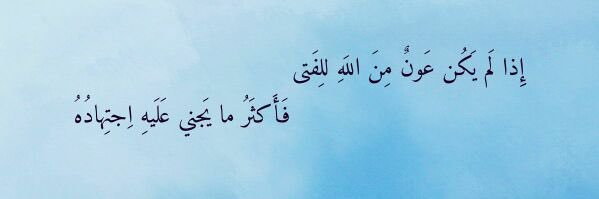 إِذا لَم يَكُن عَونٌ مِنَ اللَهِ لِلفَتى
فَأَكثَرُ ما يَجني عَلَيهِ اِجتِهادُهُ